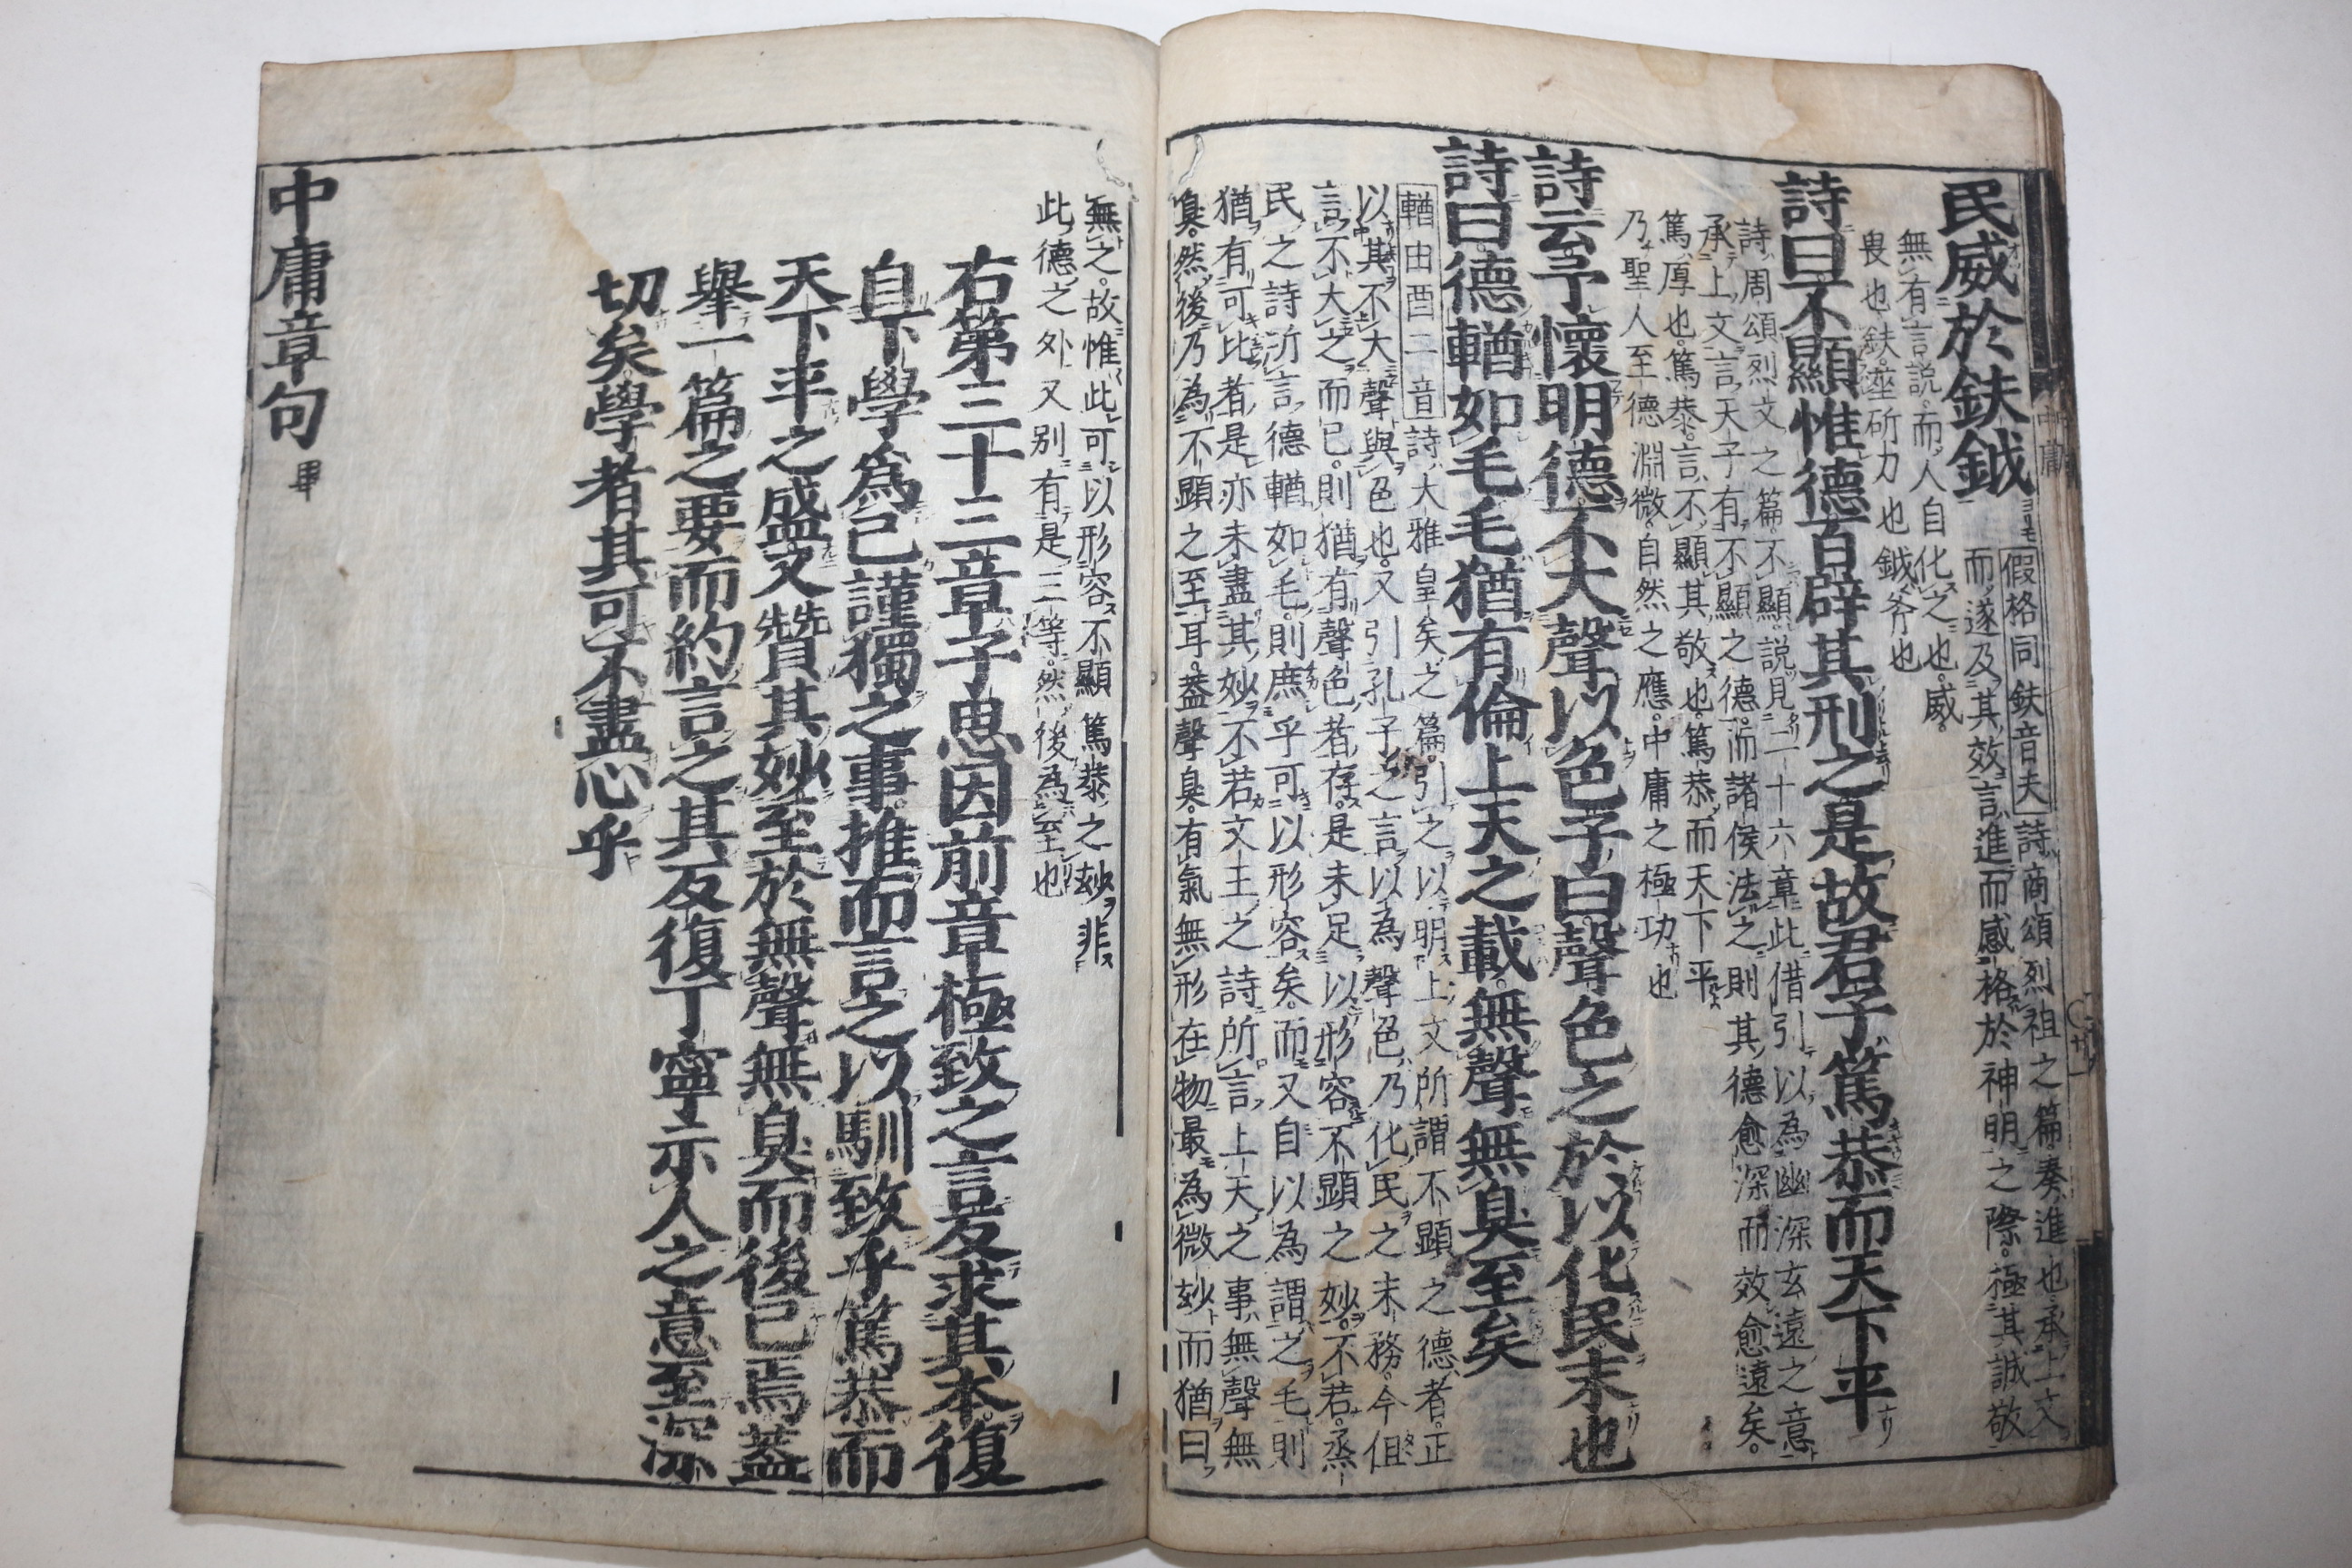 民威於鈇鉞
假格同鈇音夫
詩商頌烈祖之篇奏進也承上文
而遂及其效言進而感格於神明之際極其誠敬
無有言說而人自化之也威
畏也鈇莝斫刀也鉞斧也
詩曰不顯惟德百辟其刑之是故君子篤恭而天下平
詩周頌烈文之篇不顯說見二十六章此借引以為幽深玄遠之意
承上文言天子有不顯之德而諸侯法之則其德愈深而效愈遠矣
篤厚也篤恭言不顯其敬也篤恭而天下平
乃聖人至德淵微自然之應中庸之極功也
詩云予懷明德不大聲以色子曰聲色之於以化民末也
詩曰德輶如毛毛猶有倫上天之載無聲無臭至矣
輶由酉二音
詩大雅皇矣之篇引之以明上文所謂不顯之德者正
以其不大聲與色也又引孔子之言以為聲色乃化民之末務今但
言不大之而已則猶有聲色者存是未足以形容不顯之妙不若烝
民之詩所言德輶如毛則庶乎可以形容矣而又自以為謂之毛則
猶有可比者是亦未盡其妙不若文王之詩所言上天之事無聲無
臭然後乃為不顯之至耳蓋聲臭有氣無形在物最為微妙而猶曰
無之故惟此可以形容不顯篤恭之妙非
此德之外又別有是三等然後為至也
右第三十三章子思因前章極致之言反求其本復
自下學為己謹獨之事推而言之以馴致乎篤恭而
天下平之盛又贊其妙至於無聲無臭而後已焉蓋
舉一篇之要而約言之其反復丁寧示人之意至深
切矣學者其可不盡心乎
中庸章句